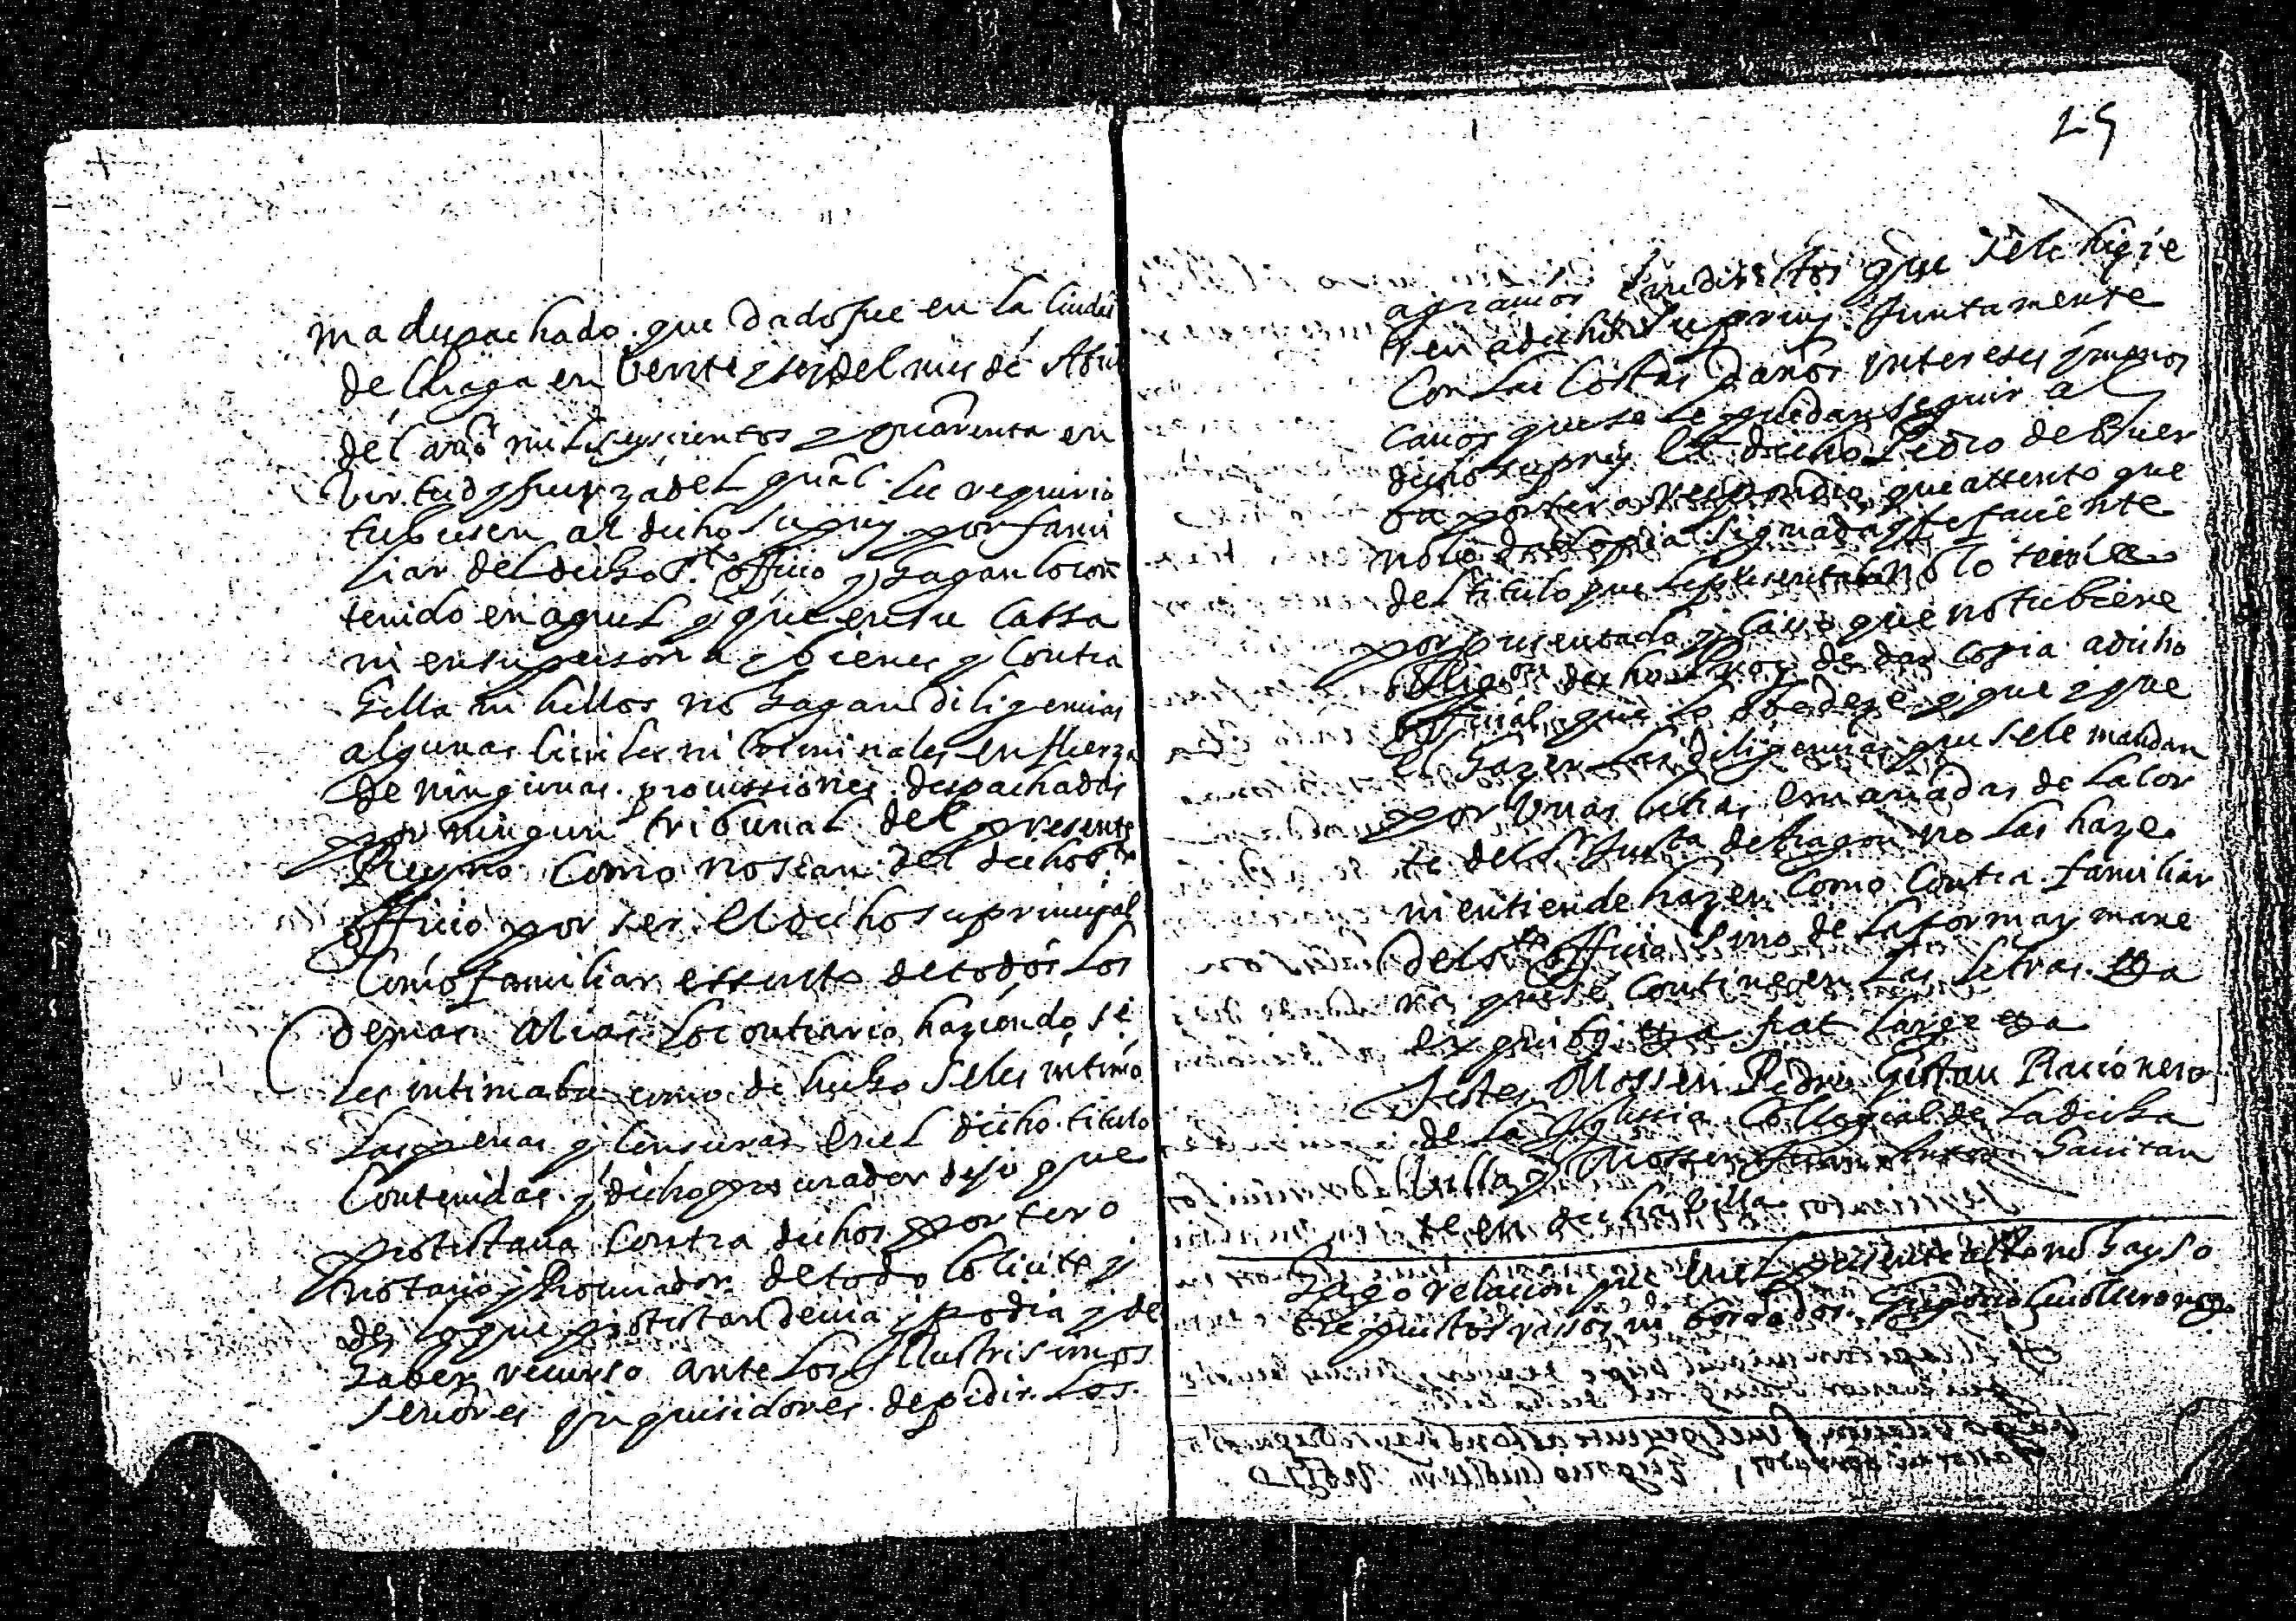 ma despachado. que dado fue en la Ciudad
de Çaragª en beinte y seis del mes de Abril
del año mil seyscientos y quarenta en
virtud y fuerza del qual. les requirio
tubiesen al dicho su prinl. por fami
liar del dicho Sto. officio y hagan lo con
tenido en aquel y que en su cassa
ni en su persona y bienes y contra
hella ni hellos no hagan diligencias
algunas civiles ni Criminales en fuerza
de ningunas. provissiones. despachadas
por ningun tribunal del presente
Reyno como no sean del dicho Sto.
officio por ser el dicho su principal
como familiar essento de todos los
demas. Alias lo contrario haziendo se
les intimaba como de hecho se les intimó
las penas y censuras en el dicho titulo
Contenidas. y dicho procurador dijo que
protestaua contra dichos portero
notario y Procurador de todo lo licito y
de lo que protestar deuia y podia y de
haber recurso ante los Illustrisimos
señores inquisidores. de pedir. los.
25
agrauios indirectos que se le hizie
ren a dicho su prinl. Juntamente
Con las Costas daños intereses y menos
cauos que se le puedan seguir a
dicho su prinl. El dicho Pedro de
portero respondio, que attento que
no le da copia signada y fe faciente
del titulo que les presentaba no lo tenia
por presentado y caso que no tubiere
obligon. dicho Pror. de dar copia a dicho
official. que lo obedeze y que y que
el hazer las diligencias que se le mandan
por unas letras emanadas de la cor
te del Sr. Justa. de Aragon no las haze
ni entiende hazer como contra familiar
del Sto. officio sino de la forma y mane
ra que se contiene en las letras. &a
ex quibus &a fiat large &a
Testes Mossen Pedro Gistau Racionero
de la Yglesia Collegial de la dicha
Villa y Mossen Juan havitan
te en dicha Villa
Hago relacion que en el presente acto no hay so
bre puestos rassos ni borrados. Gregorio